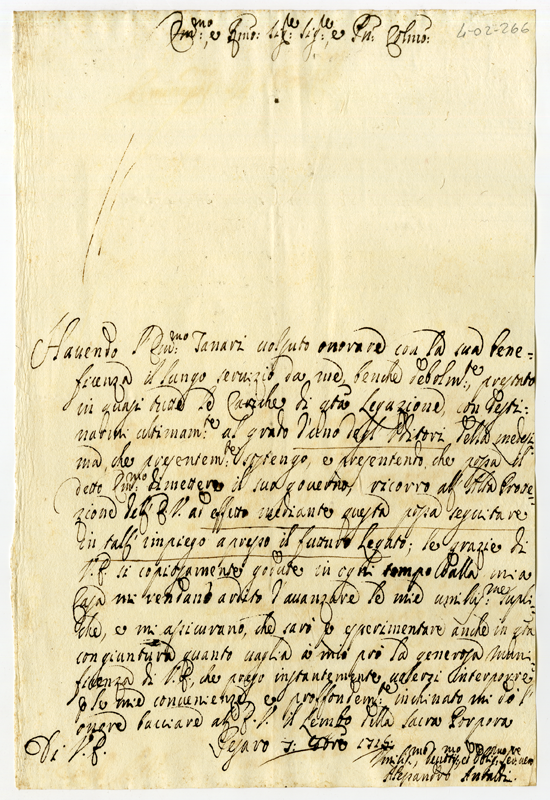 Em:mo, e Rmo: Sig:re Sig:re, e Pn: Colmo:
4-02-266
Havendo l'Em:mo Tanari voluto onorare con la sua bene-
ficenza il lungo servizio da me, benche debolm:te, prestato
in quasi tutte le Cariche di q:ta Legazione, con desti-
narmi ultimam:te al grado d'uno degl'Uditori della medesi
ma, che presentem:te sostengo, e presentendo, che possa il
detto Em:mo dimettere il suo governo, ricorro all'alta Prote-
zione dell'E.V. ad effetto mediante questa possa seguitare
in tall'impiego appresso il futturo Legato; le grazie di
V.E. si copiosamente godute in ogni tempo dalla mia
Casa mi rendano ardito d'avanzare le mie umilis:me supli-
che, e mi assicurano, che sarò p esperimentare anche in q:ta
congiuntura quanto vaglia a mio prò la generosa Muni
ficenza di V.E., che prego instantemente volerzi interporre
p le mie convenienze, e proffondem:te inchinato mi dò l'
onore bacciare all'E.V. il Lembo della Sacra Porpora
Di V.E. Pesaro 1716
Alesandro Antaldi